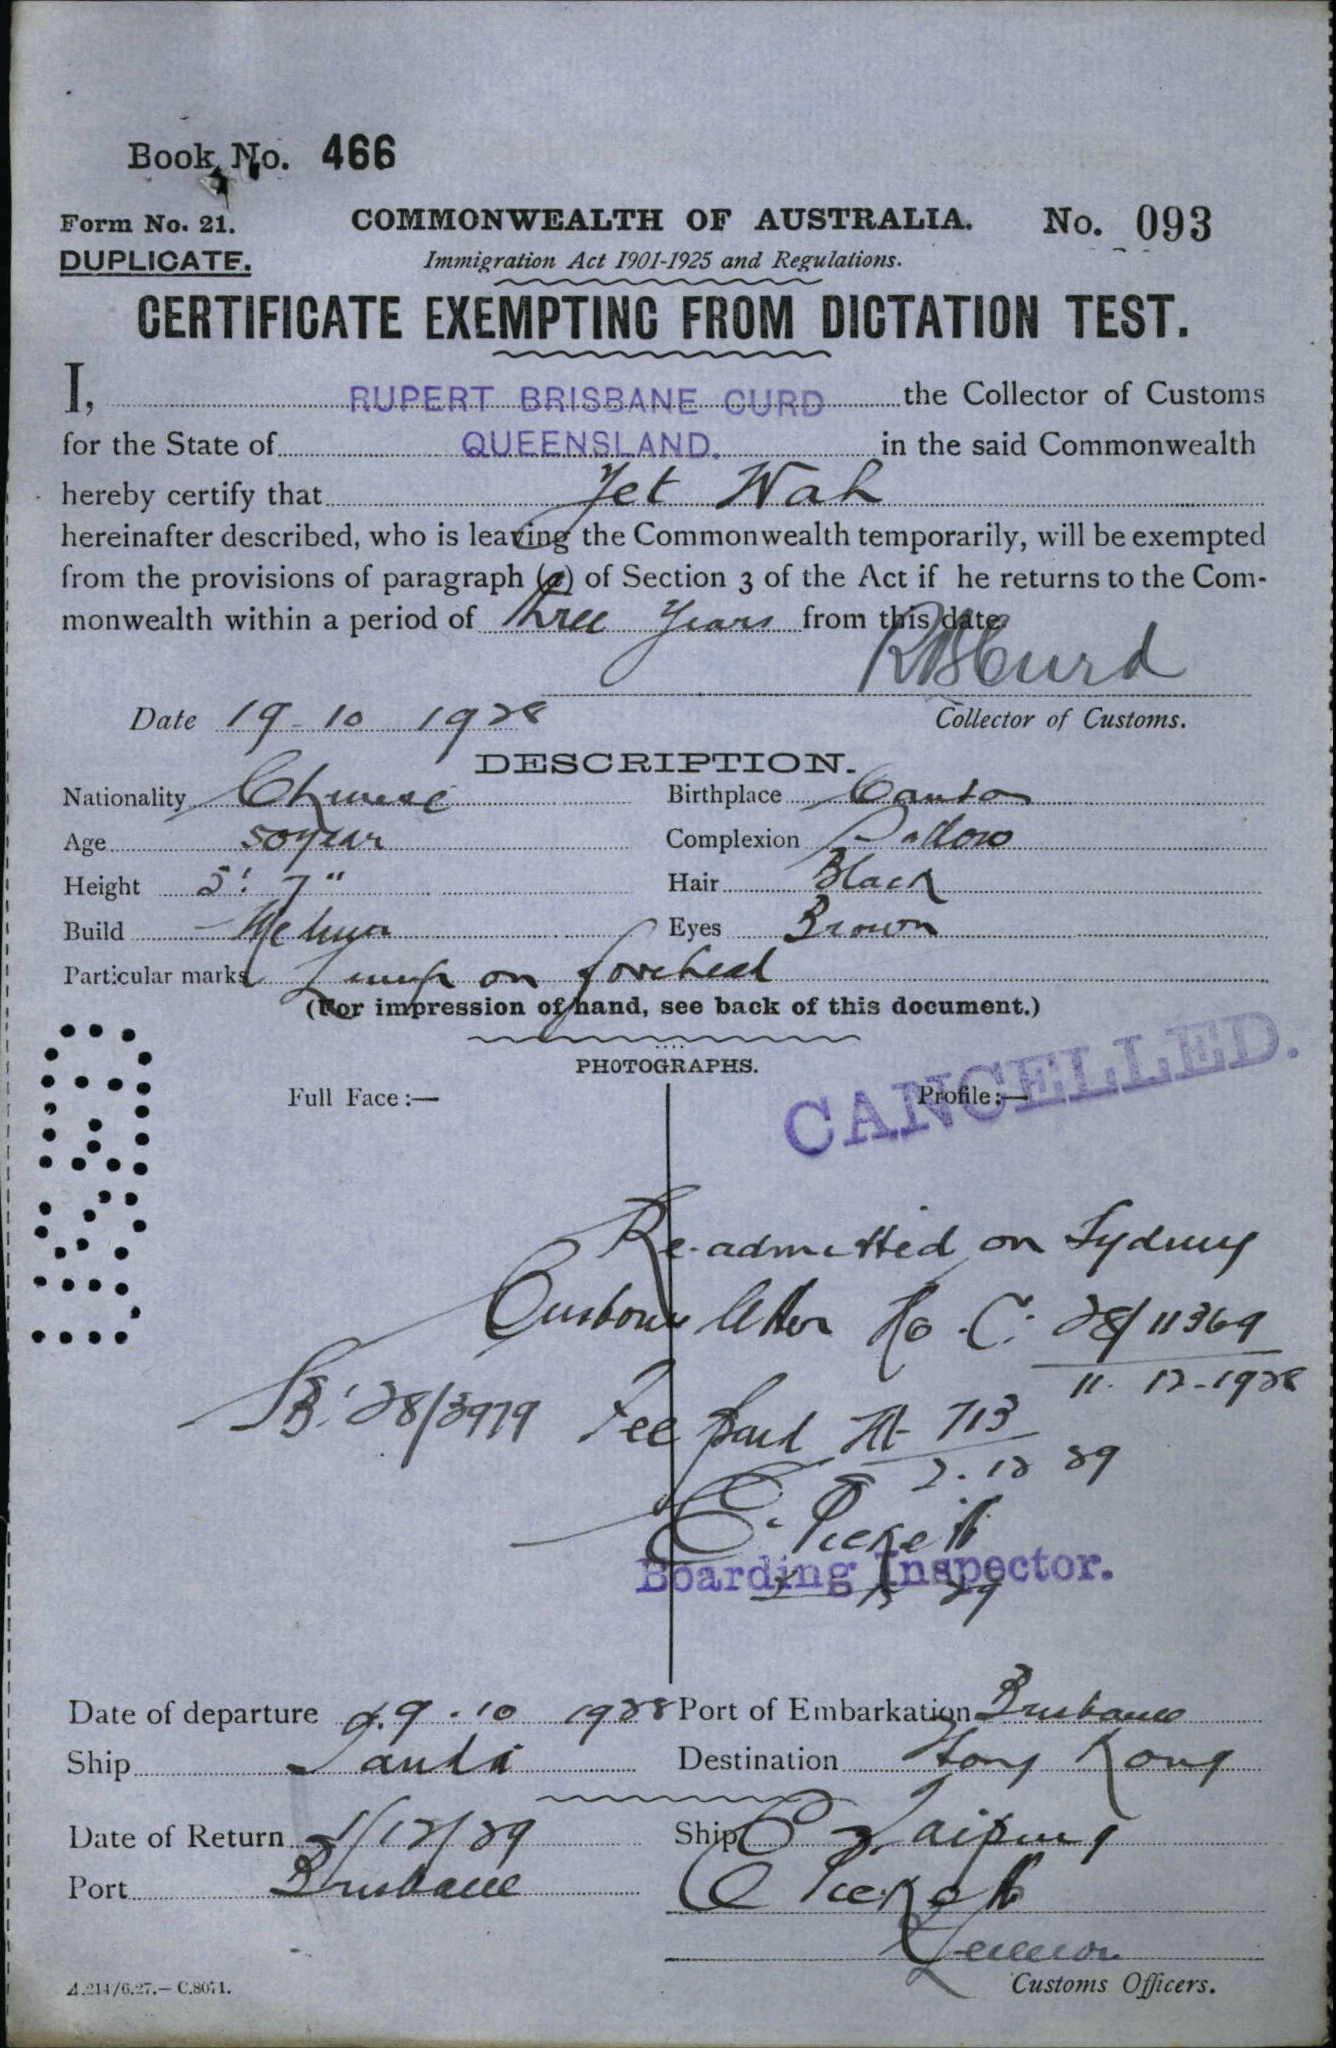 Book No. 466
Form No. 21. COMMONWEALTH OF AUSTRALIA. No. 093
DUPLICATE. Immigration Act 1901-1925 and Regulations.
CERTIFICATE EXEMPTING FROM DICTATION TEST.
I, RUPERT BRISBANE CURD the Collector of Customs
for the State of QUEENSLAND. in the said Commonwealth
hereby certify that Yet Wah
hereinafter described, who is leaving the Commonwealth temporarily, will be exempted
from the provisions of paragraph (a) of Section 3 of the Act if he returns to the Com-
monwealth within a period of three years from this date.
RBCurd
Date 19-10 1928 Collector of Customs.
DESCRIPTION.
Nationality Chinese Birthplace Canton
Age 50 year Complexion Sallow
Height 5' 7" Hair Black
Build Medium Eyes Brown
Particular marks Lump on forehead
(For impression of hand, see back of this document.)
PHOTOGRAPHS.
Full Face:— Profile:—
CANCELLED.
Re-admitted on Sydney
Customs letter No. C. 28/11369
11-12-1928
28/3979 Fee paid 713
2.12 29
E. Pickett
Boarding Inspector.
29
Date of departure 29.10 1928 Port of Embarkation Brisbane
Ship Tanda Destination Hong Kong
Date of Return 1/12/29 Ship Taiping
Port Brisbane E Pickett
Customs Officers.
A.214/6.27.—C.8071.